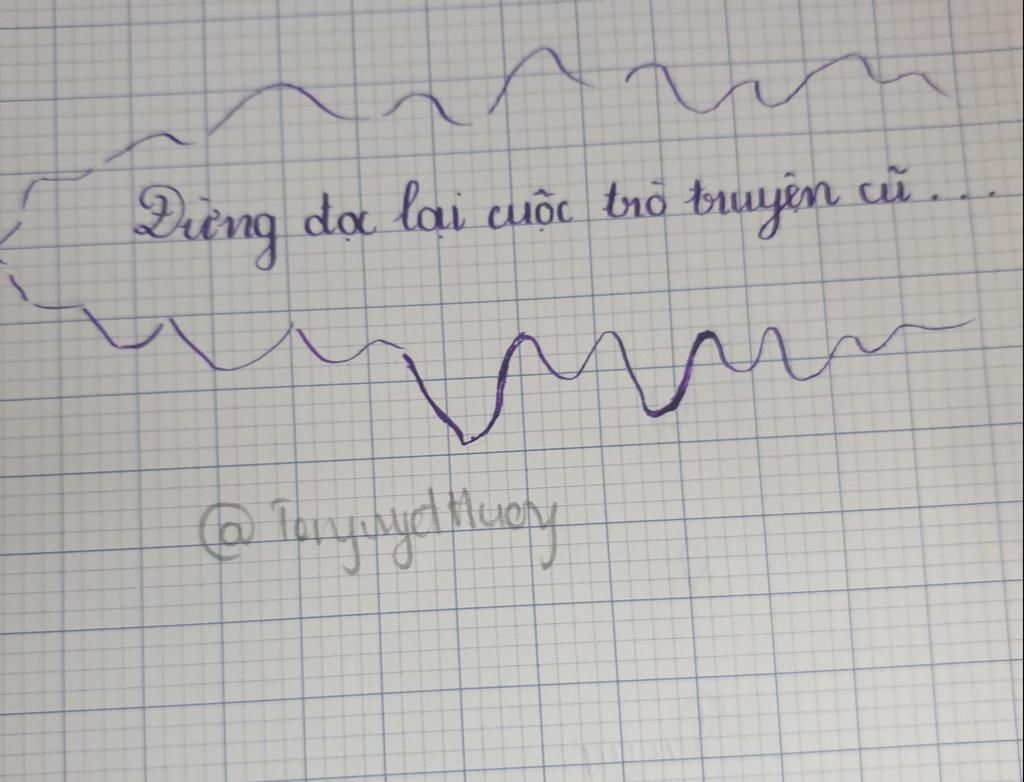 Đừng đọc lại cuộc trò truyện cũ...